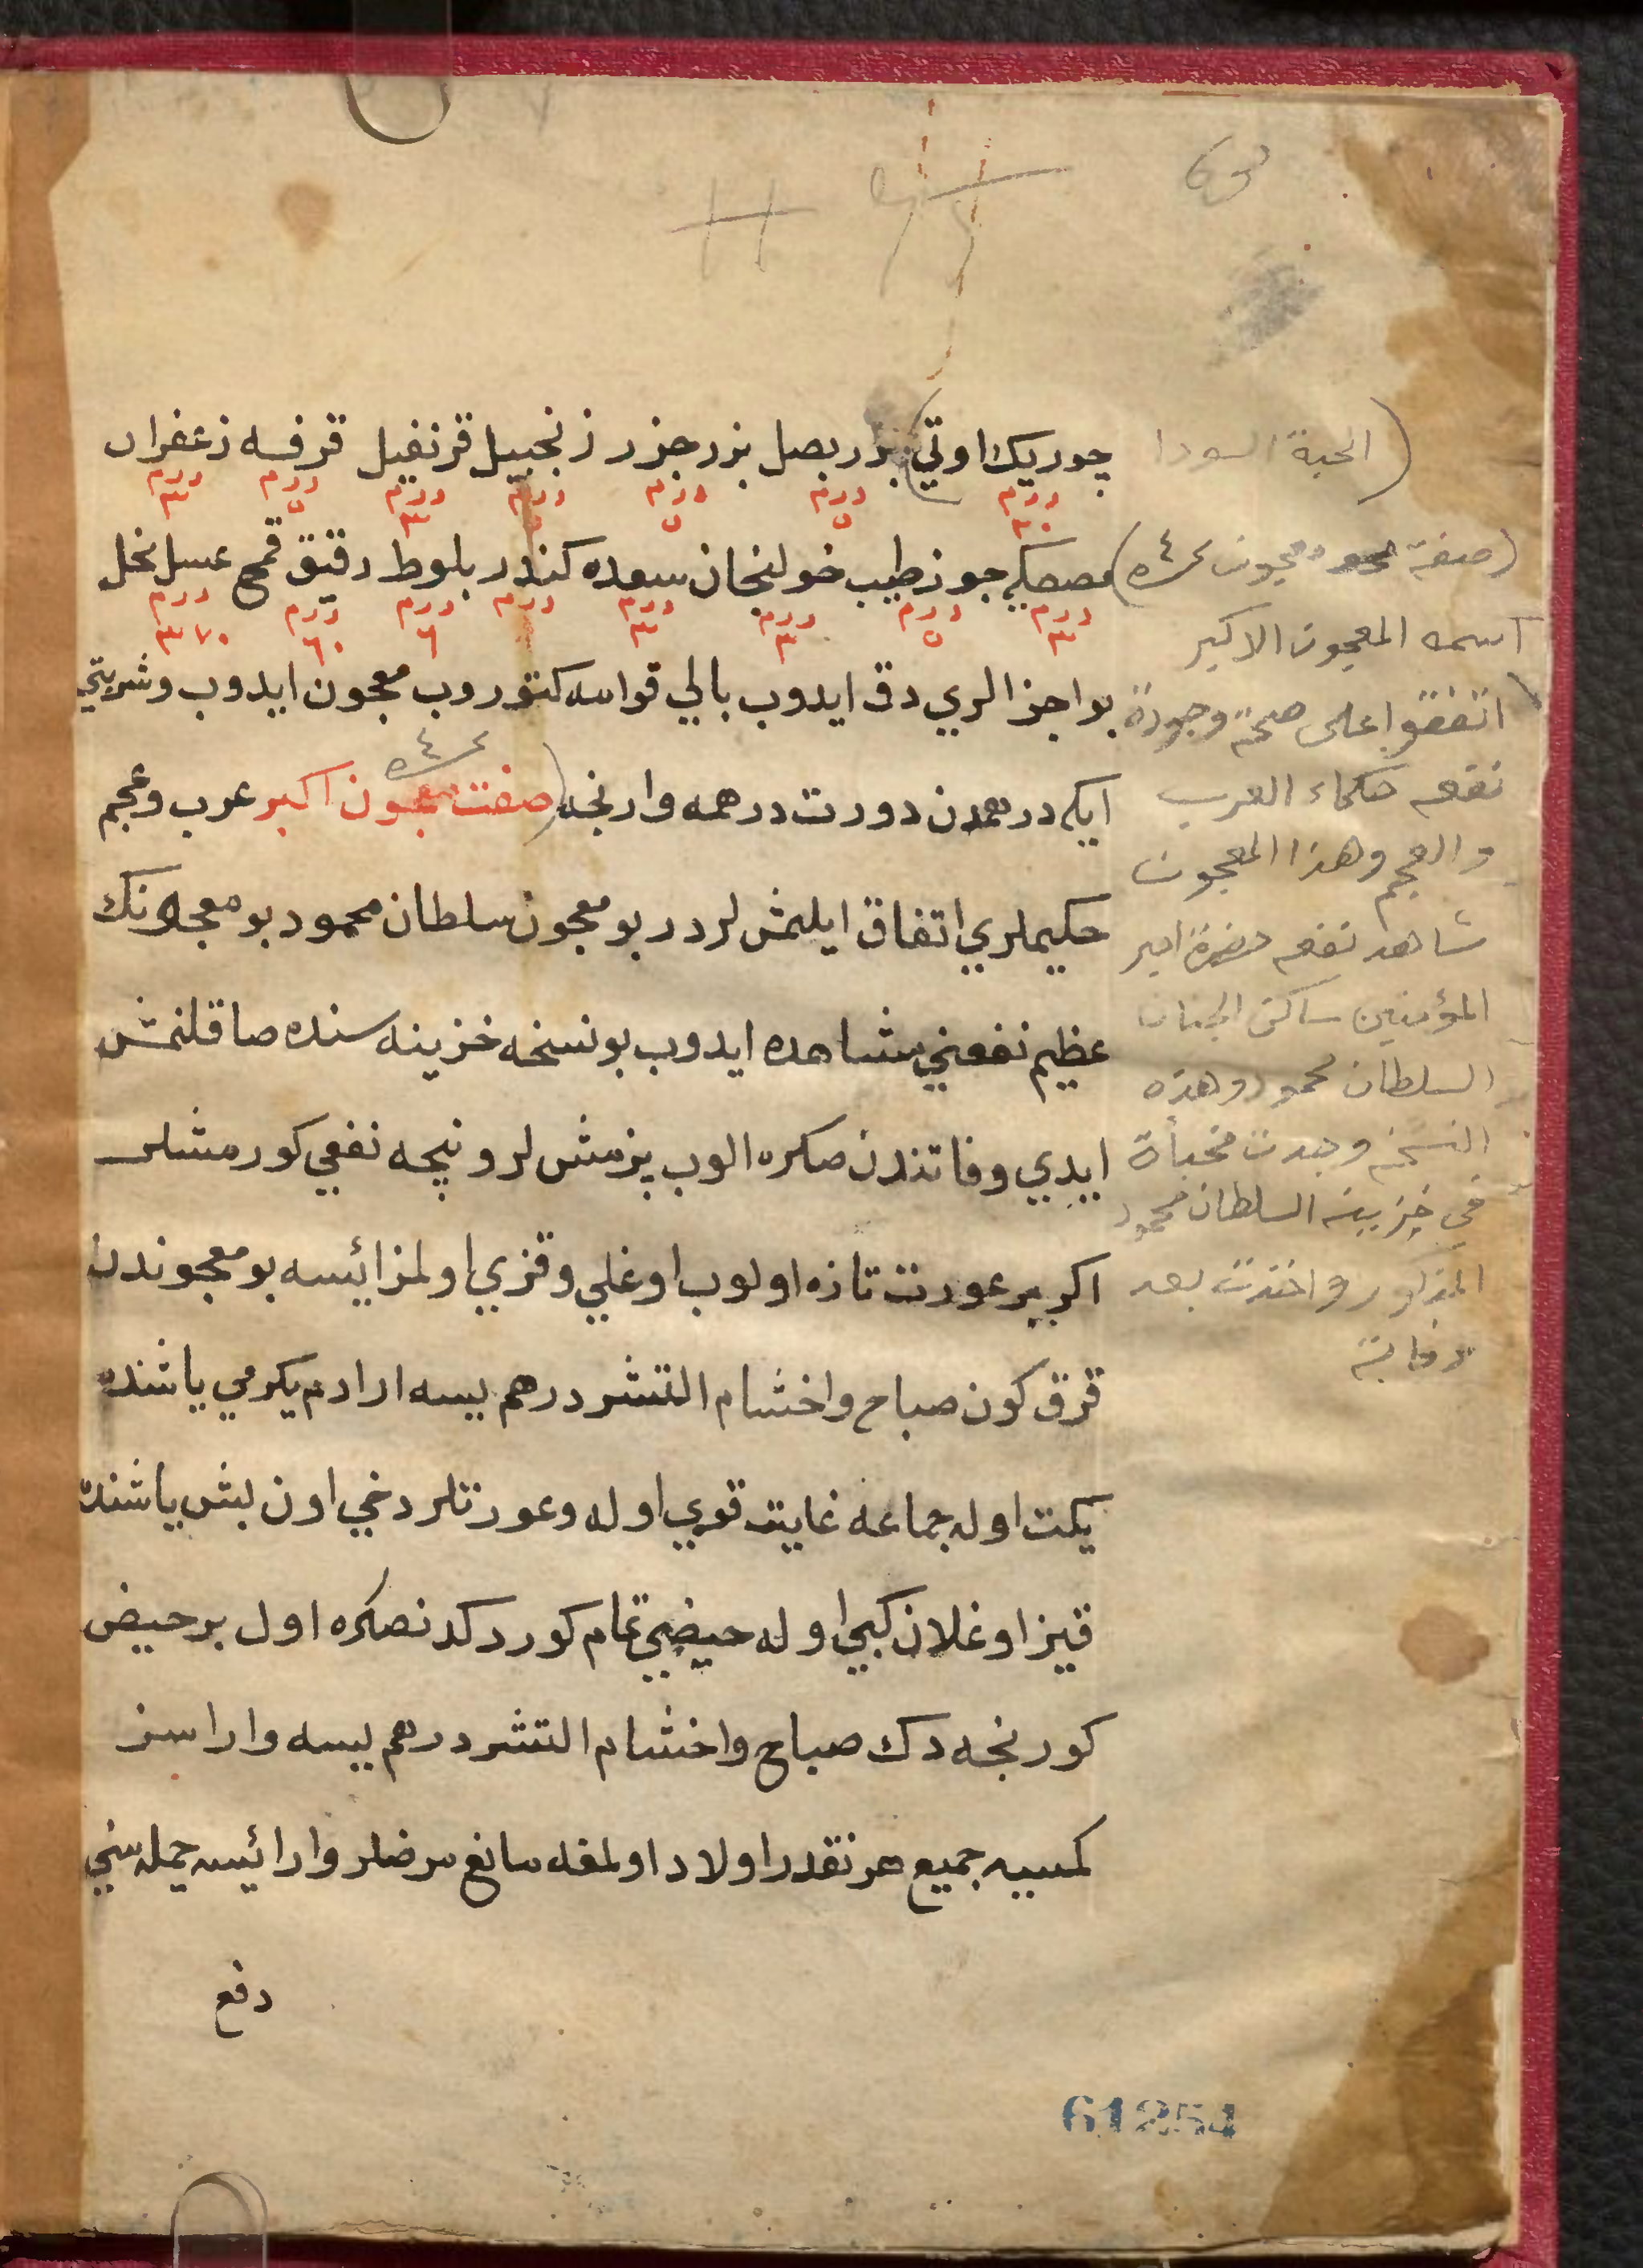 چوريك اوتي بزر بصل بزر جزر زنجبيل قرنفيل قرفه زعفران
درم ٣٠ درم ٥ درم ٥ درم درم ٣ درم ٥ درم ٣
مصطكي جوز طيب خولنجان سعده كندر بلوط دقيق قمح عسل نحل
درم ٣ درم ٥ درم ٣ درم ٣ درم درم ٦ درم ٦٠ درم ٣٧٠
بو اجزالري دق ايدوب بالي قوامه كتوروب معجون ايدوب وشربتي
ايكي درهمدن دورت درهمه وارنجه صفت معجون اكبر عرب وعجم
حكيملري اتفاق ايلمش لردر بو معجون سلطان محمود بو معجونك
عظيم نفعني مشاهده ايدوب بو نسخه خزينه سنده صاقلنمش
ايدي وفاتندن صكره الوب يزمش لر ونيجه نفعي كورمشلر
اكر بر عورت تازه اولوب اوغلي وقزي اولمز ائيسه بو معجوندن
قرق كون صباح واخشام التشر درهم ييسه ارادم يكرمي ياشنده
يكت اوله جماعه غايت قوي اوله وعورتلر دخي اون بش ياشنده
قيز اوغلان كبي اوله حيضي تمام كوردكدنصكره اول بر حيض
كورنجه دك صباح واخشام التشر درهم ييسه وارا سز
كمسيه جميع هر نقدر اولاد اولمغه مانع مرضلر وارائيسه جمله سني
دفع
(الحبة السودا
(صفة معجون
اسمه المعجون الاكبر
اتفقوا على صحة وجودة
نفعه حكماء العرب
والعجم وهذا المعجون
شاهد نفعه حضرة امير
المؤمنين ساكن الجنان
السلطان محمود وهذه
النسخة وجدت مخبأة
في خزينة السلطان محمود
المذكور واخذت بعد
وفاته
61254